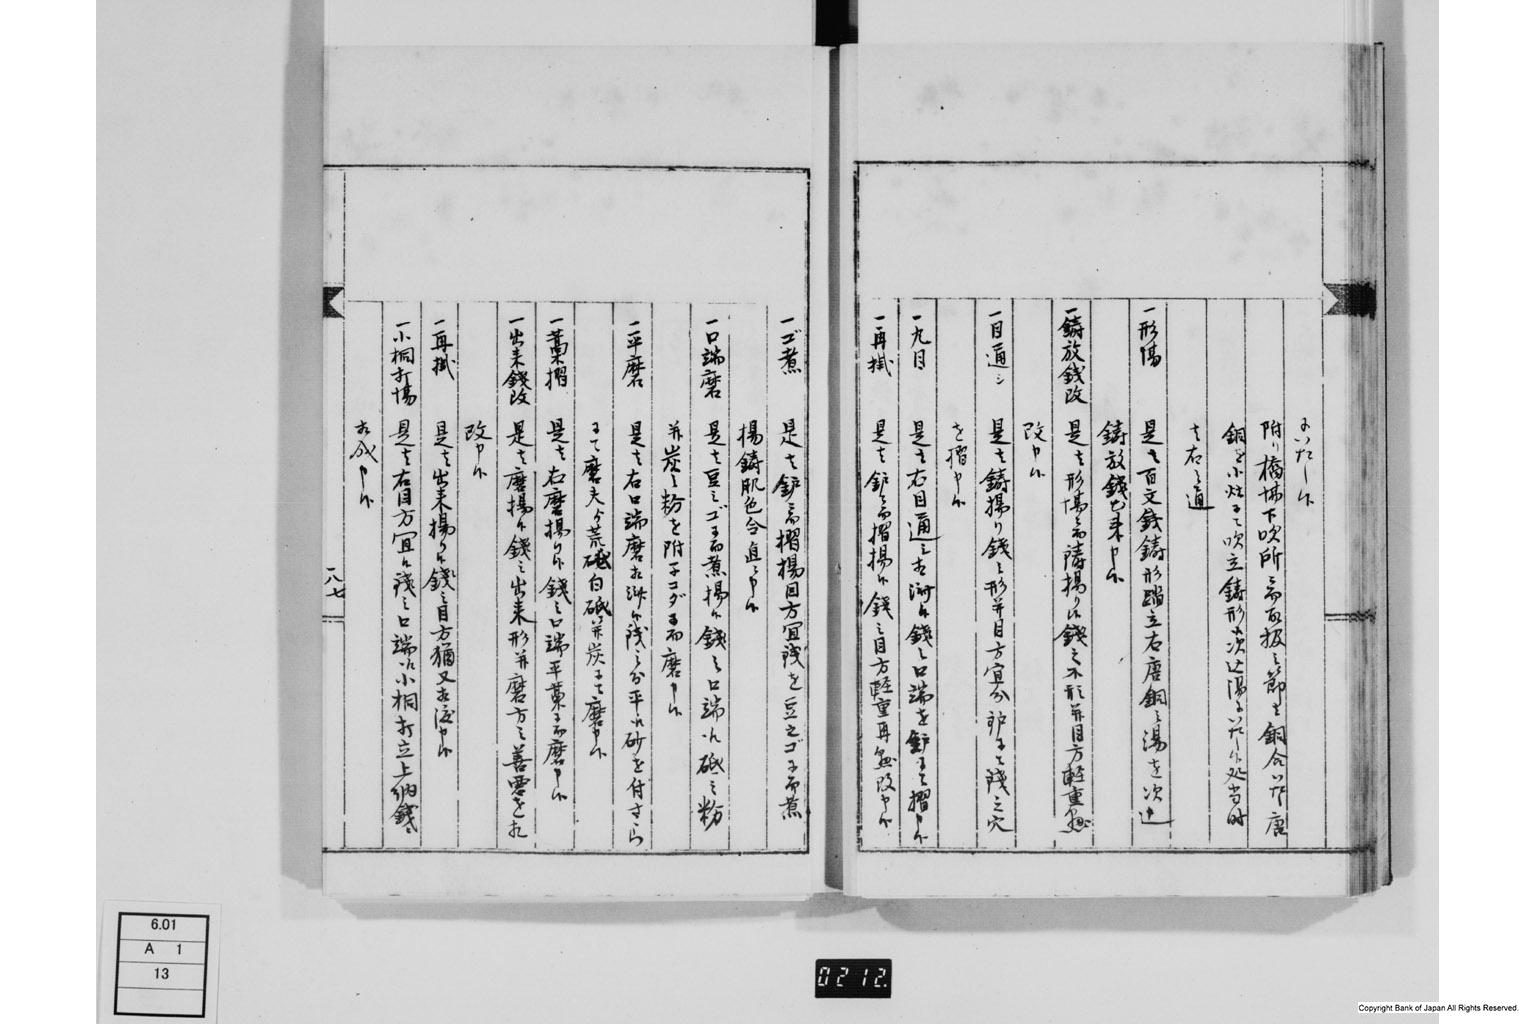 附り橋場下吹所ニ而取扱之節者銅合いたし唐
銅ニ小炉ニて吹立鋳形江次込湯ニいたし候処当時
者右之通
一形場 是者百文銭鋳形踏立右唐銅之湯を次込
鋳放銭出来申候
一鋳放銭改 是者形場ニ而鋳揚り候銭之不形并目方軽重
改申候
一目通シ 是者鋳揚り銭之形并目方宜分鈩ニて銭之穴
を摺申候
一丸目 是者右目通之相済候銭之口端を鈩ニて摺申候
一再掛 是者鈩ニ而摺揚候銭之目方軽重再改申候
一ゴ煮 是者鈩ニ而摺揚目方宜銭を豆之ゴニ而煮
揚鋳肌色合直シ申候
一口端磨 是者豆之ゴニ而煮揚候銭之口端江砥之粉
并炭之粉を附ニコダニ而磨申候
一平磨 是者右口端磨相済候銭之分平江砂を付さゝら
ニて磨夫ゟ荒砥白砥并炭ニて磨申候
一藁摺 是者右磨揚り候銭之口端平藁ニ而磨申候
一出来銭改 是者磨揚候銭之出来形并磨方之善悪を相
改申候
一再掛 是者出来揚り候銭之目方猶又相改申候
一小桐打場 是者右目方宜候銭之口端江小桐打立上納銭ニ
相成申候
一八七
6.01
A 1
13
0212.
Copyright Bank of Japan All Rights Reserved.